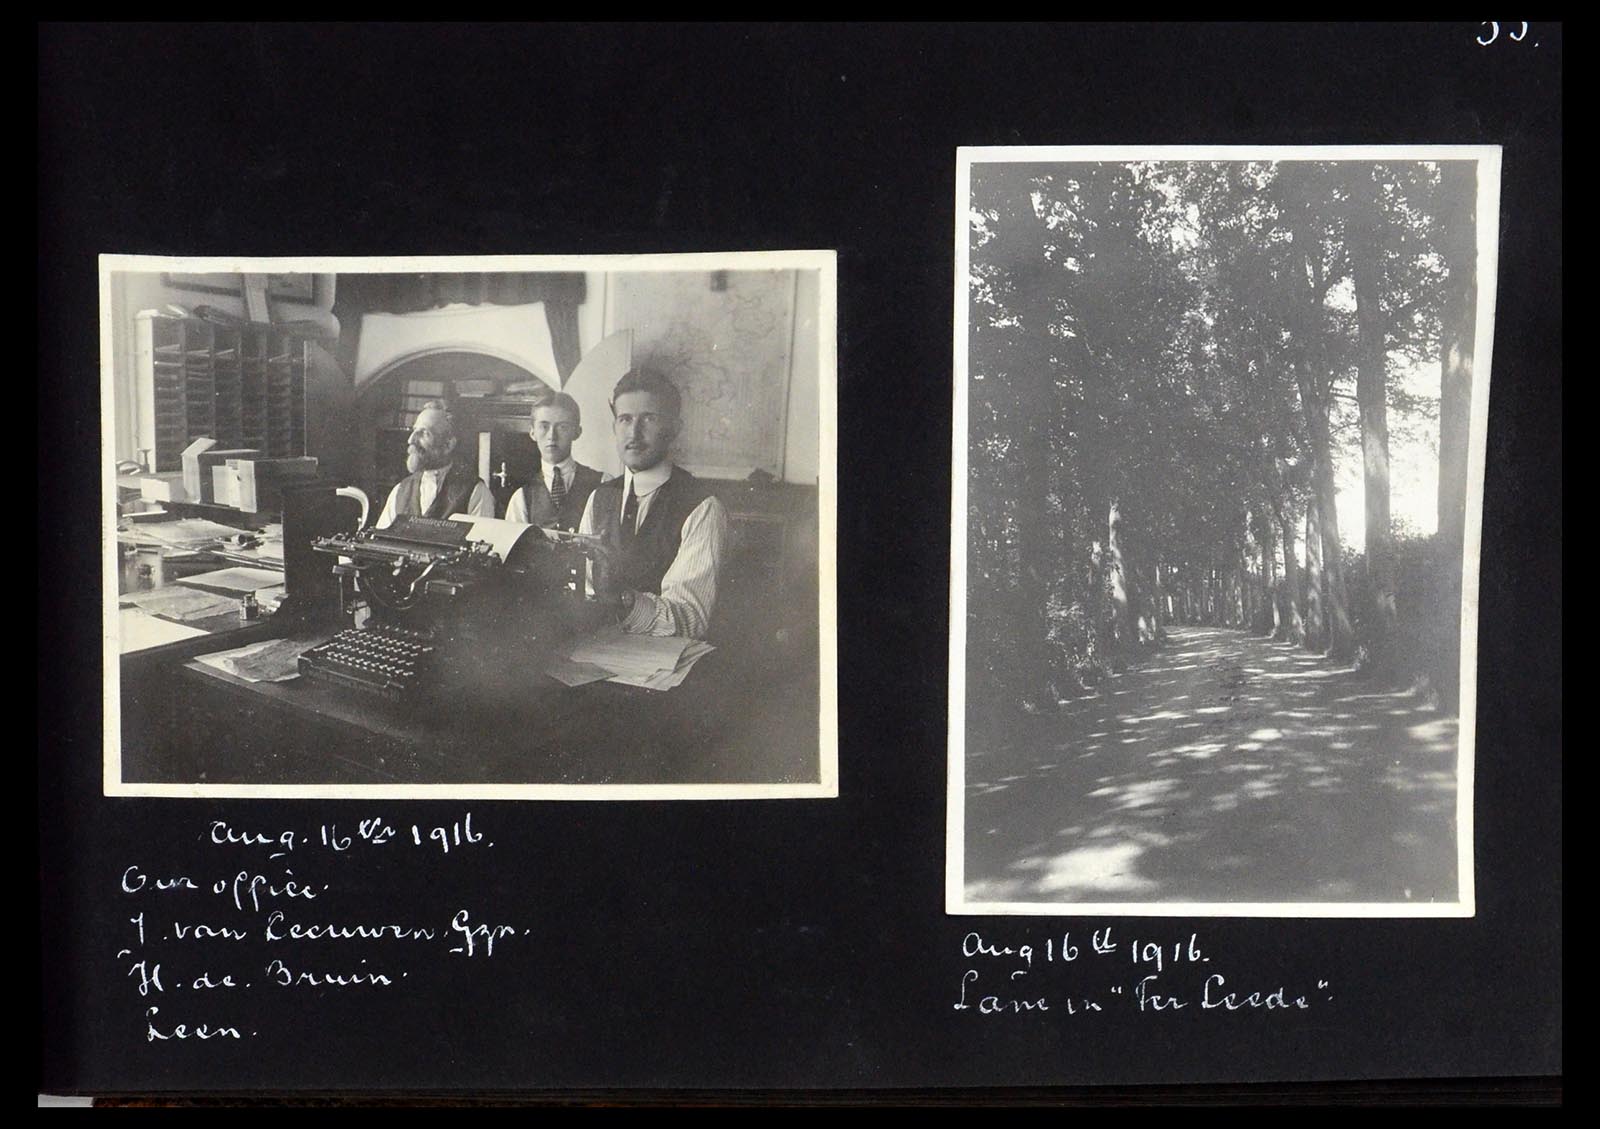 33.
Remington
Aug. 16th 1916.
Our office.
J. van Leeuwen. Gzn.
H. de. Bruin.
Leen.
Aug 16th 1916.
Lane in "Ter Leede".